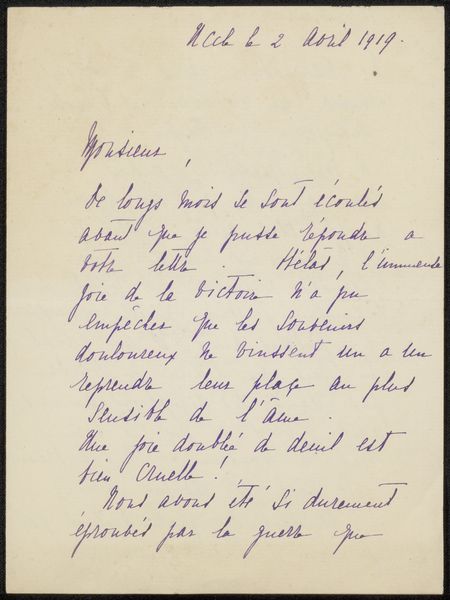 Uccle le 2 Avril 1919.
Monsieur,
De longs mois se sont écoulés
avant que je pusse répondre a
votre lettre. Hélas, l'immense
joie de la Victoire n'a pu
empêcher que les Souvenirs
douloureux ne vinssent un a un
reprendre leur place au plus
sensible de l'âme.
Une joie doublée de deuil est
bien cruelle!
Nous avons été si durement
éprouvés par la guerre que